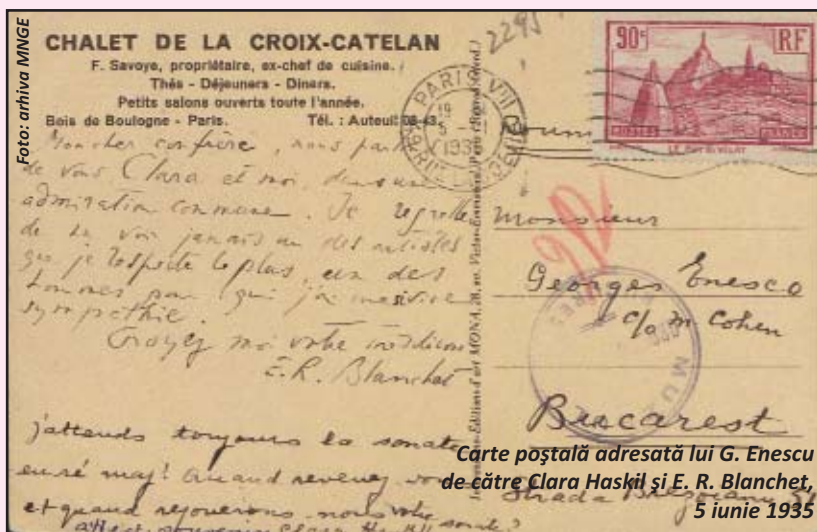 Foto: arhiva MNGE
CHALET DE LA CROIX-CATELAN
F. Savoye, propriétaire, ex-chef de cuisine.
Thés - Déjeuners - Diners.
Petits salons ouverts toute l'année.
Bois de Boulogne - Paris. Tél. : Auteuil 08-43.
Mon cher confrère, nous
de vous Clara et moi, dans une
admiration commune. Je regrette
de voir jamais un des artistes
que je respecte le plus, un des
hommes pour qui j'ai une vive
sympathie.
Croyez moi votre
E. R. Blanchet
j'attends toujours la sonate
en ré maj! Quand revenez vous
et quand rejouerons-nous votre sonate?
souvenir Clara
2295
PARIS VIII
5
90c RF
LE PUY-EN-VELAY
Monsieur
Georges Enesco
c/o M Cohen
Bucarest
Strada
MU
Carte poştală adresată lui G. Enescu
de către Clara Haskil şi E. R. Blanchet,
5 iunie 1935